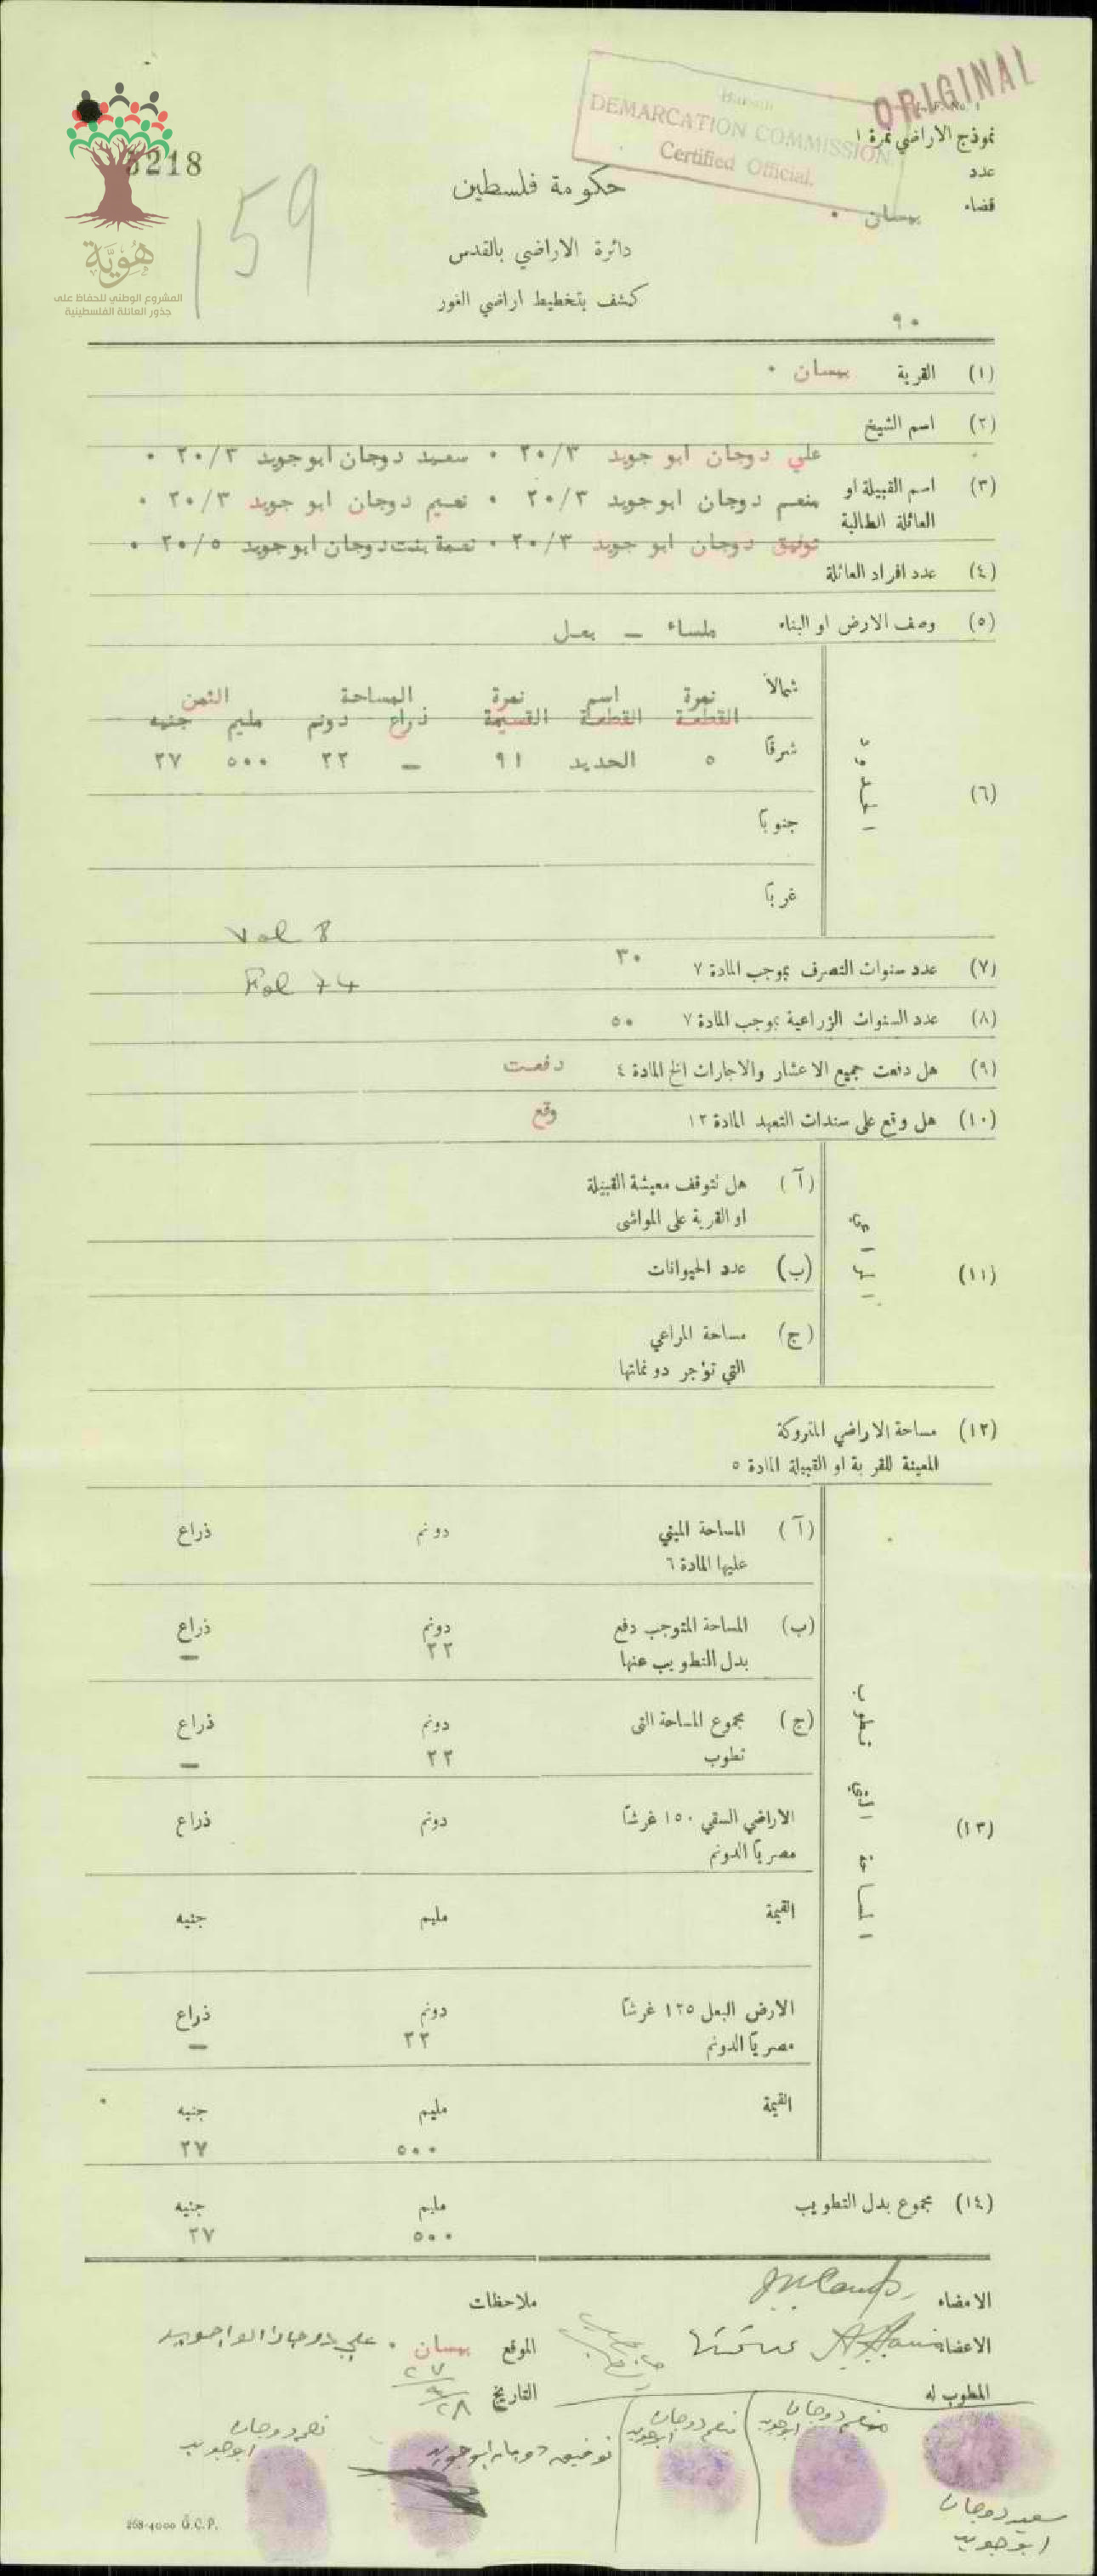 ORIGINAL
Beisan
DEMARCATION COMMISSION
Certified Official.
نموذج الاراضي نمرة ١
عدد
قضاء بيسان ٠
3218
159
هُوِيَّة
المشروع الوطني للحفاظ على
جذور العائلة الفلسطينية
حكومة فلسطين
دائرة الاراضي بالقدس
كشف بتخطيط اراضي الغور
٩٠
(١) القرية بيسان ٠
(٢) اسم الشيخ
علي دوجان ابو جويد ٢٠/٣ ٠ سعيد دوجان ابو جويد ٢٠/٣ ٠
(٣) اسم القبيلة او منعم دوجان ابو جويد ٢٠/٣ ٠ نعيم دوجان ابو جويد ٢٠/٣ ٠
العائلة الطالبة
توفيق دوجان ابو جويد ٢٠/٣ ٠ نعمة بنت دوجان ابو جويد ٢٠/٥ ٠
(٤) عدد افراد العائلة
(٥) وصف الارض او البناء ملساء – بعل
(٦) الحدود
شمالاً نمرة اسم نمرة المساحة الثمن
القطعة القطعة القسيمة ذراع دونم مليم جنيه
شرقاً ٥ الحديد ٩١ – ٢٢ ٥٠٠ ٢٧
جنوباً
غرباً
Vol 8
(٧) عدد سنوات التصرف بموجب المادة ٧ ٣٠
Fol 74
(٨) عدد السنوات الزراعية بموجب المادة ٧ ٥٠
(٩) هل دفعت جميع الاعشار والاجارات الخ المادة ٤ دفعت
(١٠) هل وقع على سندات التعهد المادة ١٢ وقع
(١١) المراعي
(آ) هل تتوقف معيشة القبيلة
او القرية على المواشي
(ب) عدد الحيوانات
(ج) مساحة المراعي
التي تؤجر دونماتها
(١٢) مساحة الاراضي المتروكة
المعينة للقرية او القبيلة المادة ٥
(١٣) المساحة التي تطوب
(آ) المساحة المبني دونم ذراع
عليها المادة ٦
(ب) المساحة المتوجب دفع دونم ذراع
بدل التطويب عنها ٢٢ –
(ج) مجموع المساحة التي دونم ذراع
تطوب ٢٢ –
الاراضي السقي ١٥٠ غرشاً دونم ذراع
مصرياً الدونم
القيمة مليم جنيه
الارض البعل ١٢٥ غرشاً دونم ذراع
مصرياً الدونم ٢٢ –
القيمة مليم جنيه
٥٠٠ ٢٧
(١٤) مجموع بدل التطويب مليم جنيه
٥٠٠ ٢٧
الامضاء ملاحظات
الاعضاء الموقع بيسان ٠ علي دوجان ابو جويد
المطوب له التاريخ
منعم دوجان
ابو جويد
نعيم دوجان
ابو جويد
توفيق دوجان ابو جويد
دوجان
ابو جويد
سعيد دوجان
ابو جويد
268-4000 G.C.P.